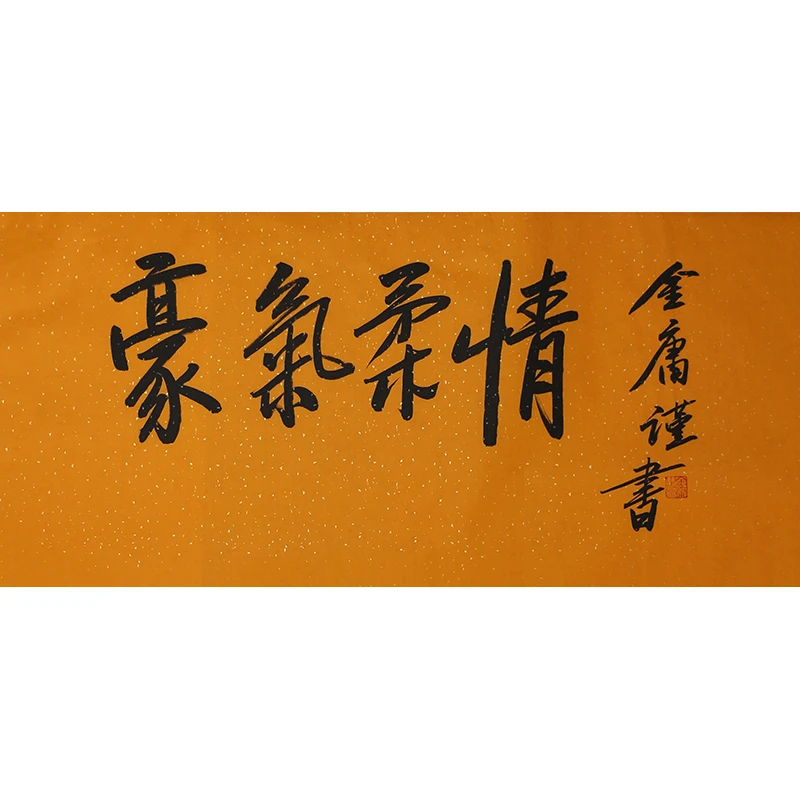 豪氣柔情
金庸謹書